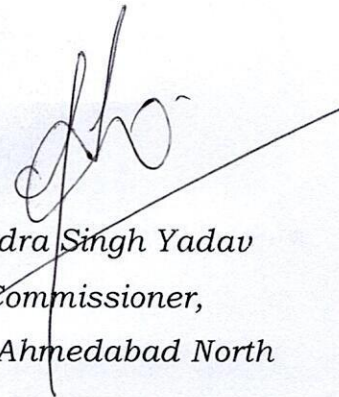 dra Singh Yadav
Commissioner,
Ahmedabad North